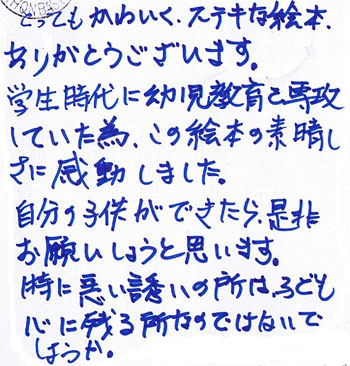 とってもかわいく、ステキな絵本、
ありがとうございます。
学生時代に幼児教育を専攻
していた為、この絵本の素晴し
さに感動しました。
自分の子供ができたら、是非
お願いしようと思います。
特に悪い誘いの所は、子ども
心に残る所なのではないで
しょうか。